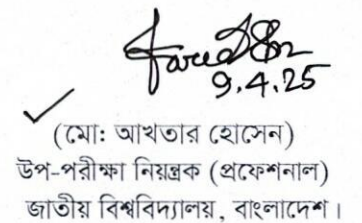 9.4.25
(মো: আখতার হোসেন)
উপ-পরীক্ষা নিয়ন্ত্রক (প্রফেশনাল)
জাতীয় বিশ্ববিদ্যালয়, বাংলাদেশ।